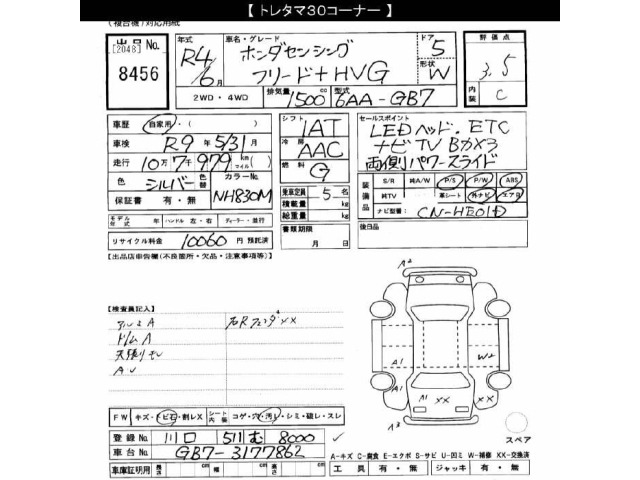 【 トレタマ30コーナー 】
(複合機)対応用紙
出品No.
[2048]
8456
年式
R4/6月
車名・グレード
ホンダセンシング
フリード+HVG
ドア
5
形状
W
評価点
3.5
内装
C
2WD・4WD
排気量
1500cc
型式
6AA-GB7
車歴
自家用
車検
R9年5/31月
走行
10万7千979 km(マイル)
色
シルバー
色替
カラーNo.
NH830M
保証書
有・無
モデル年式
年
ハンドル 左・右
ディーラー・並行
リサイクル料金
10060円 預託済
シフト
IAT
冷房
AAC
燃料
G
乗車定員
5名
積載量
kg
総重量
kg
書類期限
月 日
セールスポイント
LEDヘッド. ETC
ナビTV Bカメラ
両側パワースライド
装備品
S/R
M/A/W
P/S
P/W
ABS
M/TV
革シート
外ナビ
エアB
ナビ型番
CN-HE01D
後日品
【出品店車告欄(不良箇所・欠品・注意事項等)】
【検査員記入】
アルミA
ドムA
天張りヨレ
右Rフェンダ XX
A2
A1
W2
A1
A1
XX
XX
A3
スペア
FW
キズ・トビ石・割レX
シート内張
コゲ・穴・汚レ・シミ・破レ・スレ
登録No.
川口 511 む 8000
車台No.
GB7-3177862
車庫証明用
長さ cm
幅 cm
高さ cm
A-キズ C-腐食 E-エクボ S-サビ U-凹ミ W-補修 XX-交換済
工具 有・無
ジャッキ 有・無